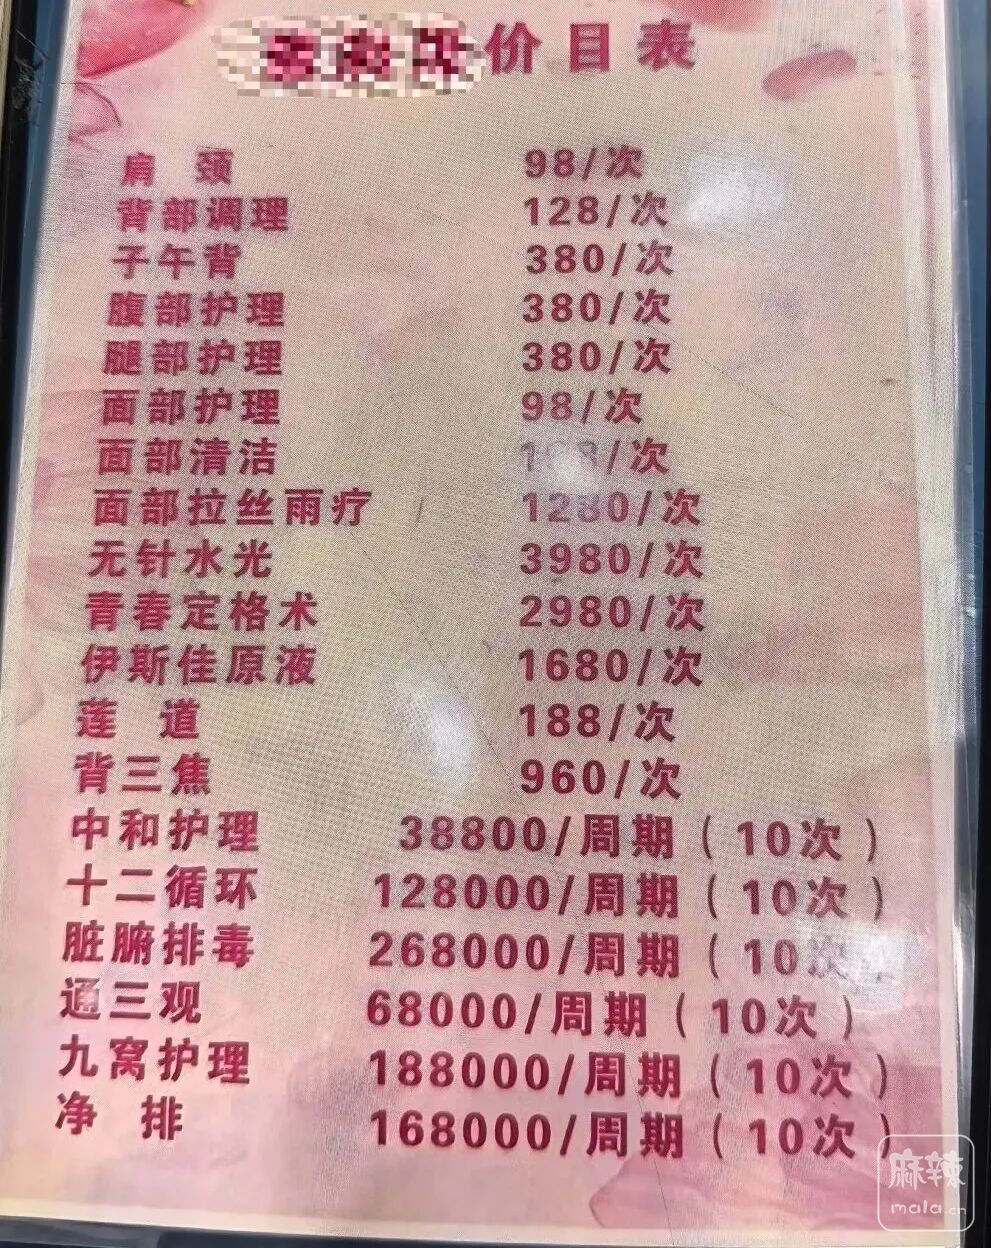 价目表
肩 颈 98/次
背部调理 128/次
子午背 380/次
腹部护理 380/次
腿部护理 380/次
面部护理 98/次
面部清洁 /次
面部拉丝雨疗 1280/次
无针水光 3980/次
青春定格术 2980/次
伊斯佳原液 1680/次
莲 道 188/次
背三焦 960/次
中和护理 38800/周期(10次)
十二循环 128000/周期(10次)
脏腑排毒 268000/周期(10次)
通三观 68000/周期(10次)
九窝护理 188000/周期(10次)
净 排 168000/周期(10次)
麻辣
mala.cn